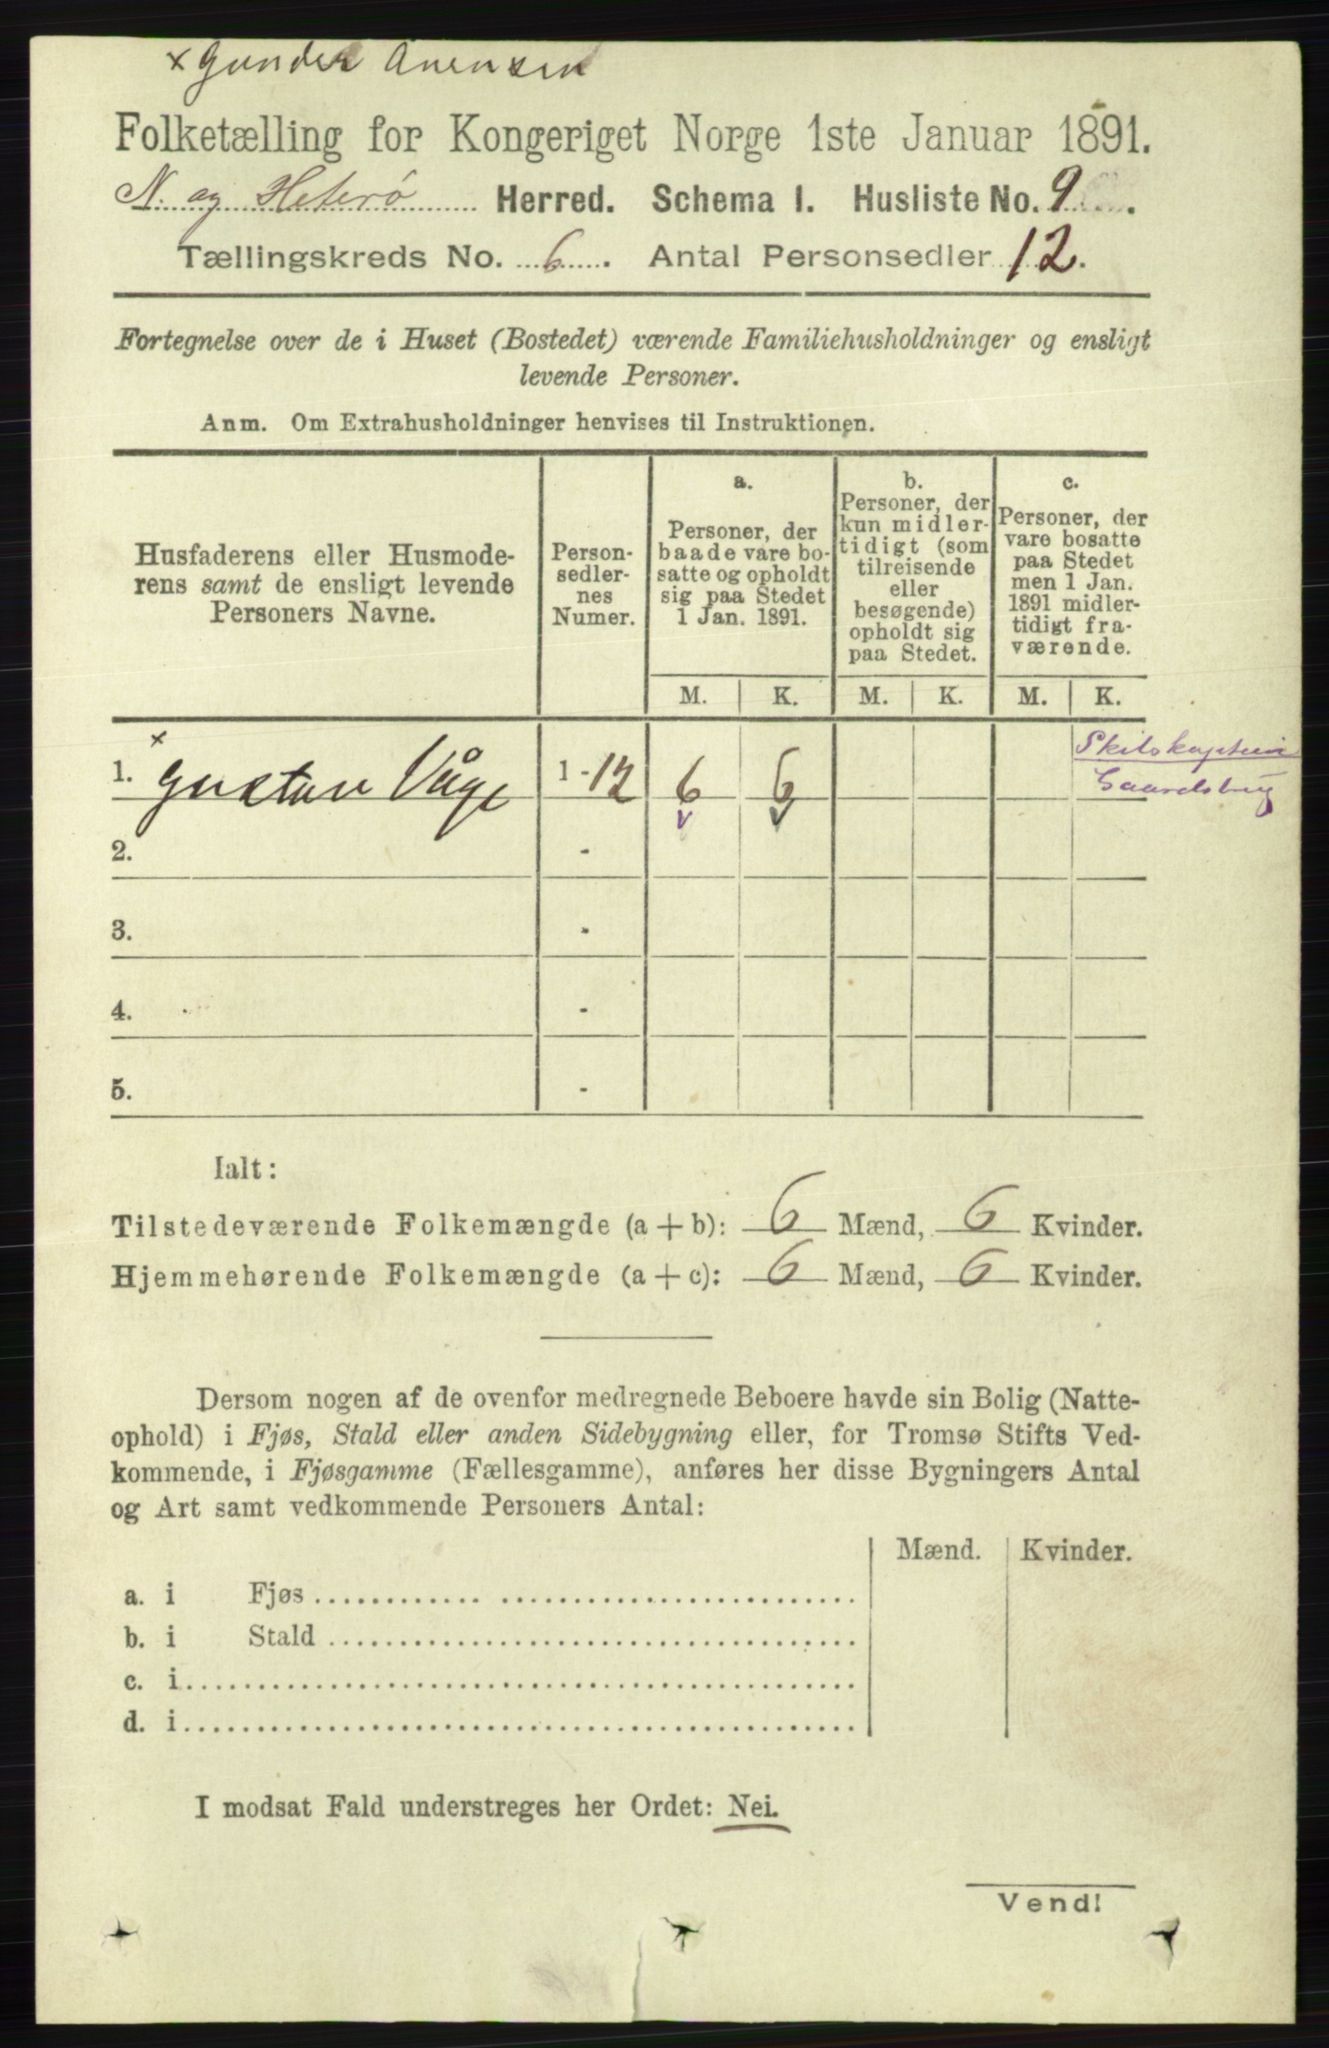 × Gunder Anensen
Folketælling for Kongeriget Norge 1ste Januar 1891.
N. og Heterø Herred. Schema I. Husliste No. 9.
Tællingskreds No. 6. Antal Personsedler 12.
Fortegnelse over de i Huset (Bostedet) værende Familiehusholdninger og ensligt
levende Personer.
Anm. Om Extrahusholdninger henvises til Instruktionen.
Husfaderens eller Husmode-
rens samt de ensligt levende
Personers Navne.
Person-
sedler-
nes
Numer.
a.
Personer, der
baade vare bo-
satte og opholdt
sig paa Stedet
1 Jan. 1891.
b.
Personer, der
kun midler-
tidigt (som
tilreisende
eller
besøgende)
opholdt sig
paa Stedet.
c.
Personer, der
vare bosatte
paa Stedet
men 1 Jan.
1891 midler-
tidigt fra-
værende.
M. K. M. K. M. K.
×
1. Gustav Våge 1 - 12 6 6
Skibskaptein
Gaardsbrug
2. -
3. -
4. -
5. -
Ialt:
Tilstedeværende Folkemængde (a + b): 6 Mænd, 6 Kvinder.
Hjemmehørende Folkemængde (a + c): 6 Mænd, 6 Kvinder.
Dersom nogen af de ovenfor medregnede Beboere havde sin Bolig (Natte-
ophold) i Fjøs, Stald eller anden Sidebygning eller, for Tromsø Stifts Ved-
kommende, i Fjøsgamme (Fællesgamme), anføres her disse Bygningers Antal
og Art samt vedkommende Personers Antal:
Mænd. Kvinder.
a. i Fjøs
b. i Stald
c. i
d. i
I modsat Fald understreges her Ordet: Nei.
Vend!